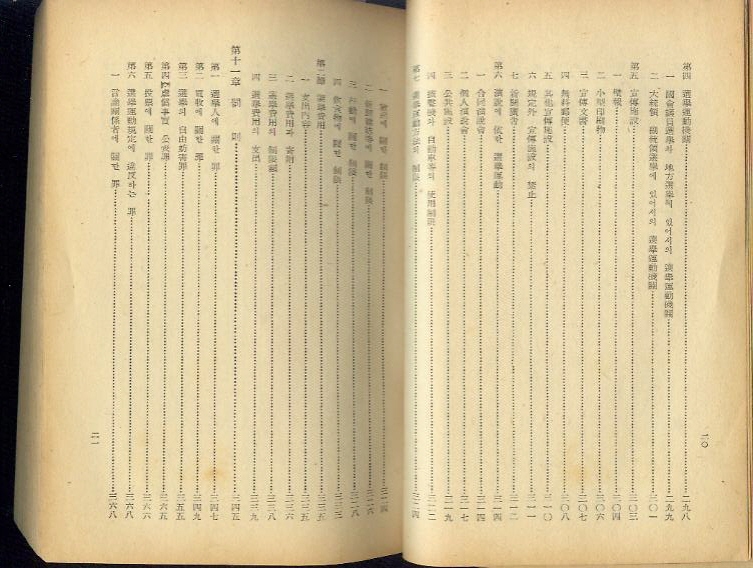 第四 選擧運動機關 二九八
一 國會議員選擧와 地方選擧에 있어서의 選擧運動機關 二九九
二 大統領 副統領選擧에 있어서의 選擧運動機關 三〇一
第五 宣傳施設 三〇三
三〇四
二 小型印刷物 三〇六
三 宣傳文書 三〇七
四 無料郵便 三〇八
五 其他宣傳施設 三一〇
六 規定外 宣傳施設의 禁止 三一一
七 新聞廣告 三一二
第六 演說에 依한 選擧運動 三一四
一 合同演說會 三一四
二 個人演說會 三一七
三 公共施設 三一九
四 擴聲機와 自動車等의 使用制限 三二二
第七 選擧運動方法의 制限 三二四
二〇
一 에 關한 制限 三二四
二 에 關한 制限 三二六
三 에 關한 制限 三二八
四 에 關한 制限 三三三
選擧費用 三三五
一 支出內容 三三五
二 選擧費用과 寄附 三三六
三 選擧費用의 制限額 三三八
四 選擧費用의 支出 三三九
第十一章 罰 則 三四五
第一 選擧人에 關한 罪 三四七
第二 買收에 關한 罪 三四九
第三 選擧의 自由妨害罪 三五五
第四 虛僞事實 公表罪 三六五
第五 投票에 關한 罪 三六六
第六 選擧運動規定에 違反하는 罪 三六八
一 言論關係者에 關한 罪 三六八
二一